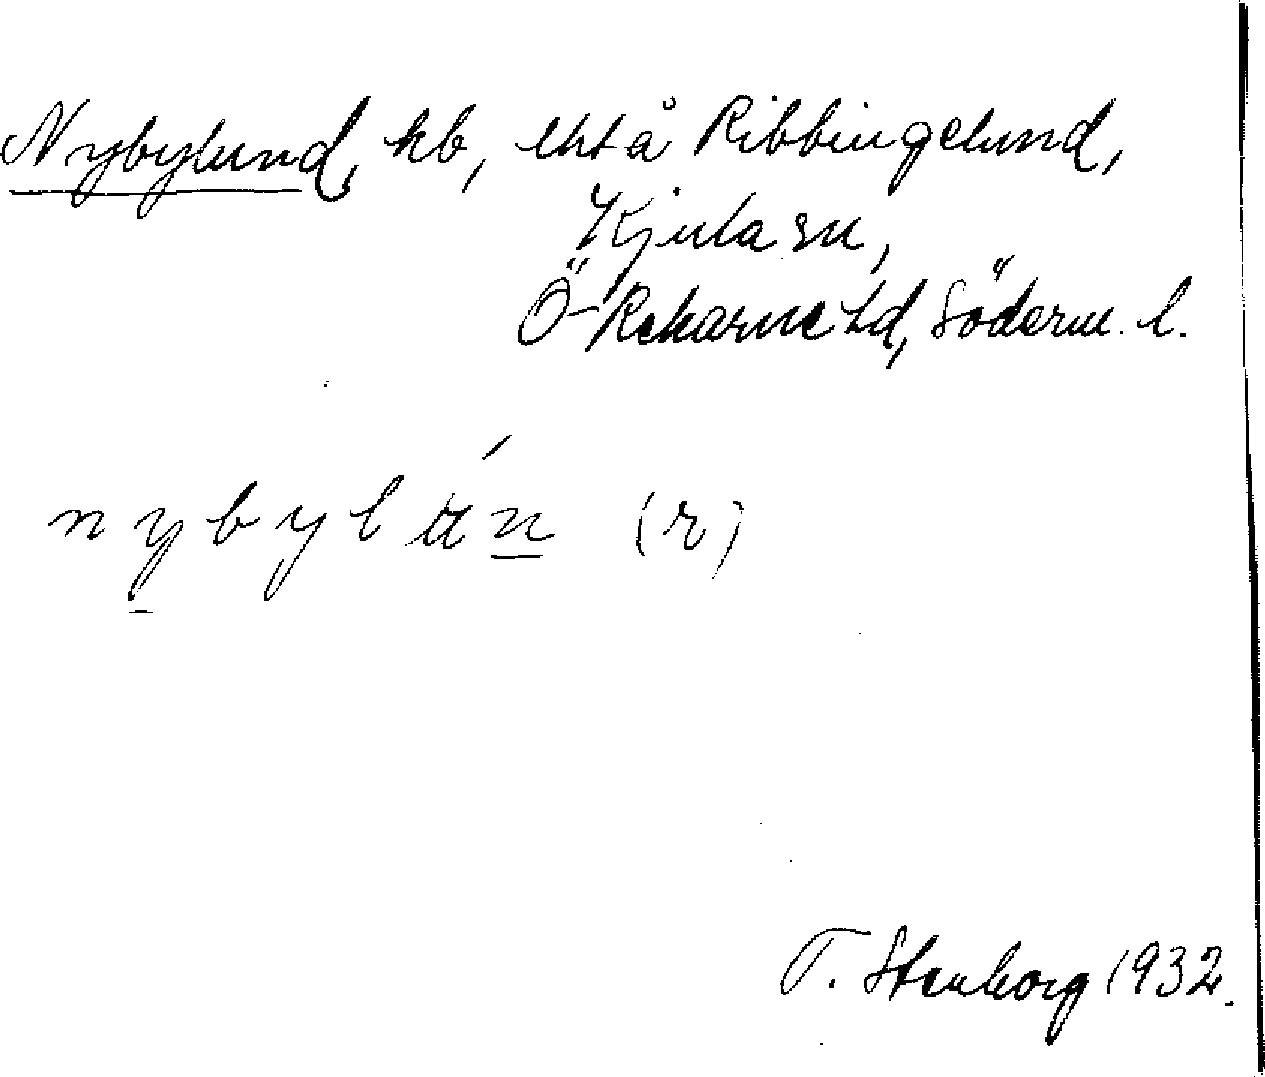 Nybylund, hb, lht å Ribbingelund,
Kjula sn,
Ö-Rekarne hd, Söderm. l.
nybylún (r)
T. Stenborg 1932.